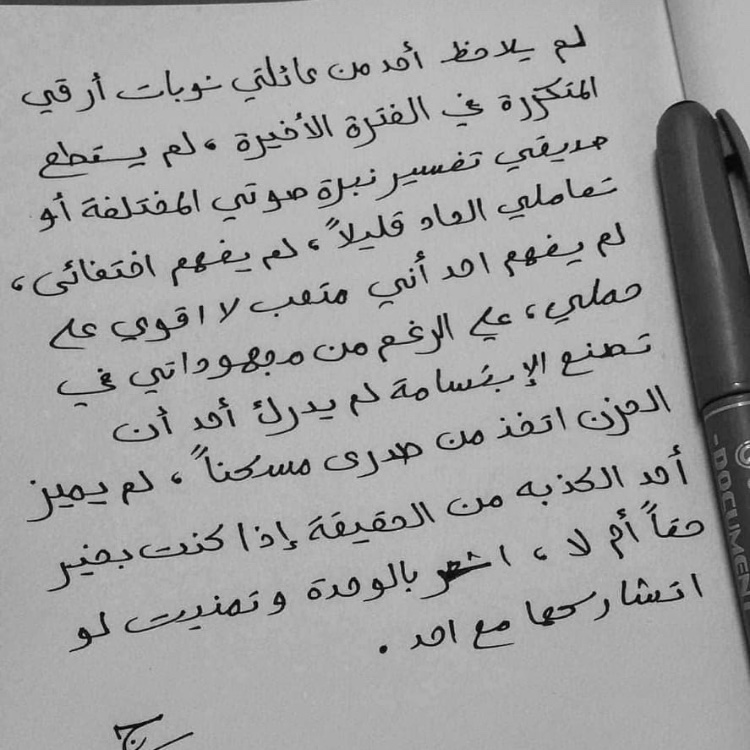 لم يلاحظ أحد من عائلتي نوبات أرقي
المتكررة في الفترة الأخيرة ، لم يستطع
صديقي تفسير نبرة صوتي المختلفة أو
تعاملي الحاد قليلاً ، لم يفهم اختفائى ،
لم يفهم احد أني متعب لا اقوى على
حملي ، على الرغم من مجهوداتي في
تصنع الإبتسامة لم يدرك أحد أن
الحزن اتخذ من صدرى مسكناً ، لم يميز
أحد الكذبه من الحقيقة إذا كنت بخير
حقاً أم لا ، اشعر بالوحدة وتمنيت لو
اتشاركها مع احد .
-DOCUMENT